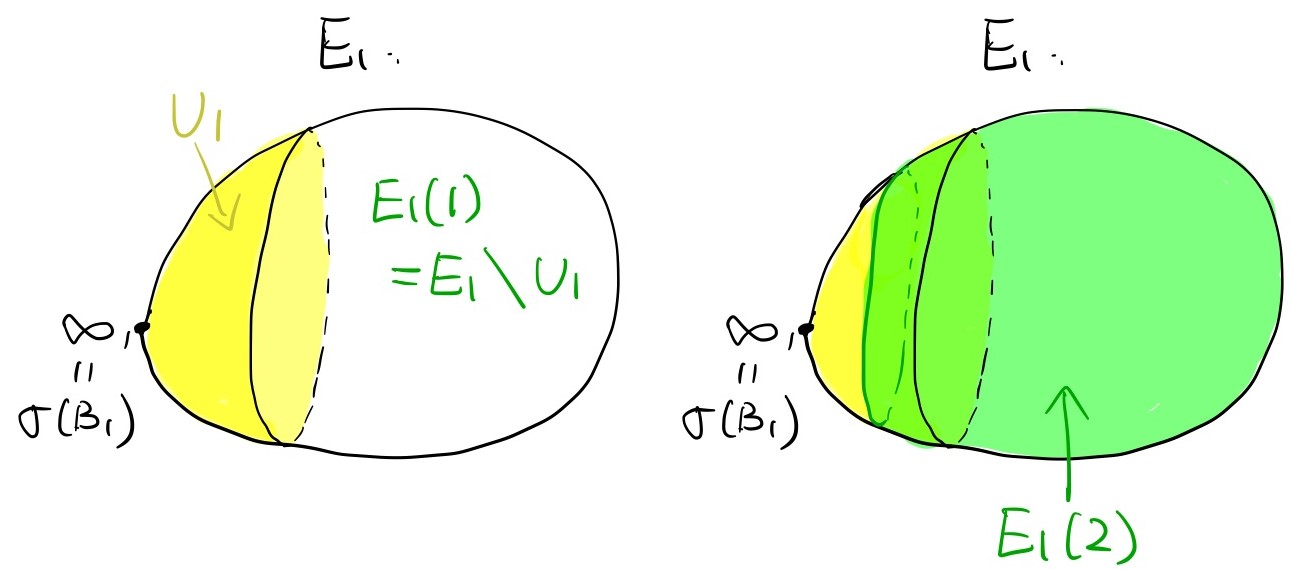 E₁ :
U₁
E₁(1)
= E₁ \ U₁
∞₁
=
σ(B₁)
E₁ :
∞₁
=
σ(B₁)
E₁(2)